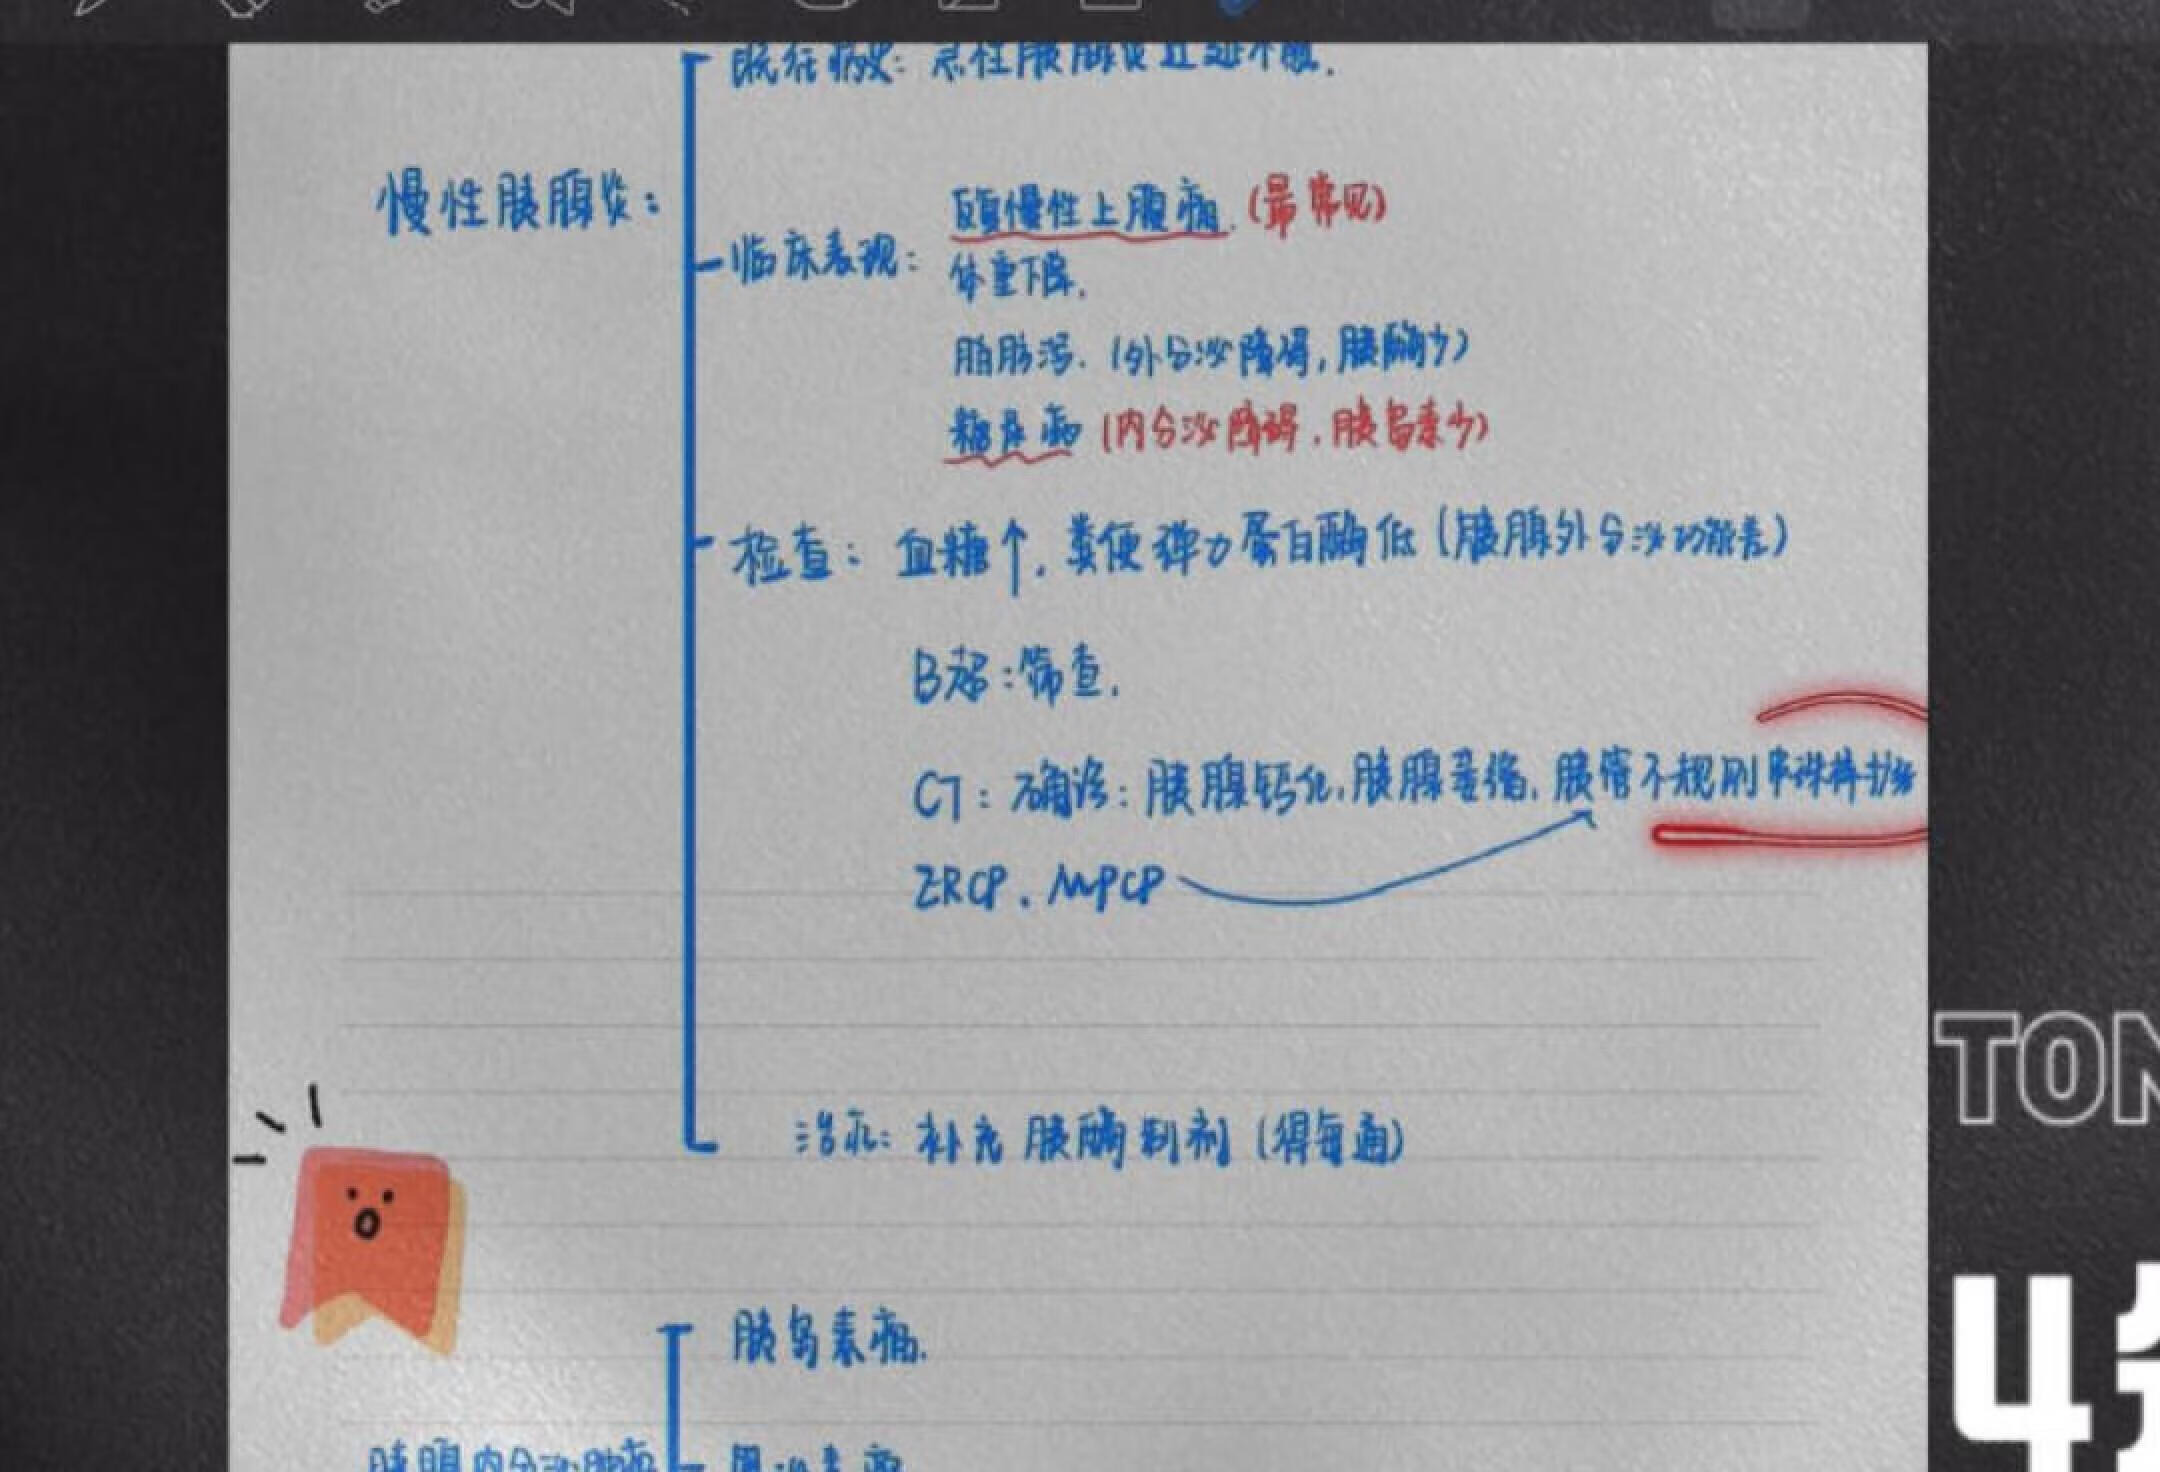 既往病史：急性胰腺炎迁延不愈.
慢性胰腺炎：
反复慢性上腹痛.(最常见)
临床表现：
体重下降.
脂肪泻.(外分泌障碍,胰酶少)
糖尿病(内分泌障碍.胰岛素少)
检查：血糖↑.粪便弹力蛋白酶低(胰腺外分泌功能差)
B超：筛查.
CT：确诊：胰腺钙化,胰腺萎缩,胰管不规则串珠样扩张
ERCP.MPCP
治疗：补充胰酶制剂(得每通)
TON
胰岛素瘤.
4
胰腺内分泌肿瘤
胃泌素瘤